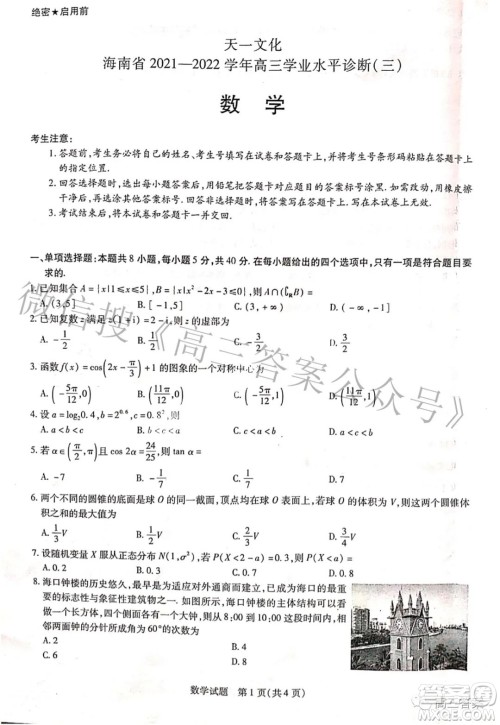 绝密★启用前
天一文化
海南省2021—2022学年高三学业水平诊断(三)
数 学
考生注意:
1. 答题前,考生务必将自己的姓名、考生号填写在试卷和答题卡上,并将考生号条形码粘贴在答题卡上
的指定位置.
2. 回答选择题时,选出每小题答案后,用铅笔把答题卡对应题目的答案标号涂黑.如需改动,用橡皮擦
干净后,再选涂其他答案标号.回答非选择题时,将答案写在答题卡上.写在本试卷上无效.
3. 考试结束后,将本试卷和答题卡一并交回.
一、单项选择题:本题共8小题,每小题5分,共40分.在每小题给出的四个选项中,只有一项是符合题目要
求的.
1. 已知集合A={x|1≤x≤5},B={x|x²-2x-3≤0},则A∩(∁ᴿB)=
A. (3,5] B. [-1,5] C. [1,3] D. ∅
2. 已知复数z满足z(1+i)=2-i,则z的虚部为
A. -3/2 B. -1/2 C. 1/2 D. 3/2
3. 函数f(x)=cos(2x-π/3)+1的图象的一个对称中心为
A. (-5π/12,0) B. (11π/12,0) C. (-5π/12,1) D. (11π/12,1)
4. 设a=log₂0.4,b=2^0.6,
A. a<b<c C. a<c<b
5. 若α∈( ,π),且cos 2α=24/25,则tan α=
A. -7 D. 7
6. 两个不同的圆锥的底面是球O的同一截面,顶点均在球O表面上,若球O的体积为V,则这两个圆锥体
积之和的最大值为
A. 1/3V B. 1/2V C. 2/3V D. 3/4V
7. 设随机变量X服从正态分布N(1,σ²),若P(X<2-a)=0.3,则P(X<a)=
A. 0.2 B. 0.3 D. 0.7
8. 海口钟楼的历史悠久,最早是为适应对外通商而建立,已成为海口的最重
要的标志性与象征性建筑物之一.如图所示,海口钟楼的主体结构可以看
做一个长方体,四个侧面各有一个大钟,则从8:00到10:00这段时间内,
相邻两面钟的分针所成角为60°的次数为
A. 2 B. 4
C. 6 D. 8
数学试题 第1页(共4页)
微信搜《高三答案公众号》
高三答案